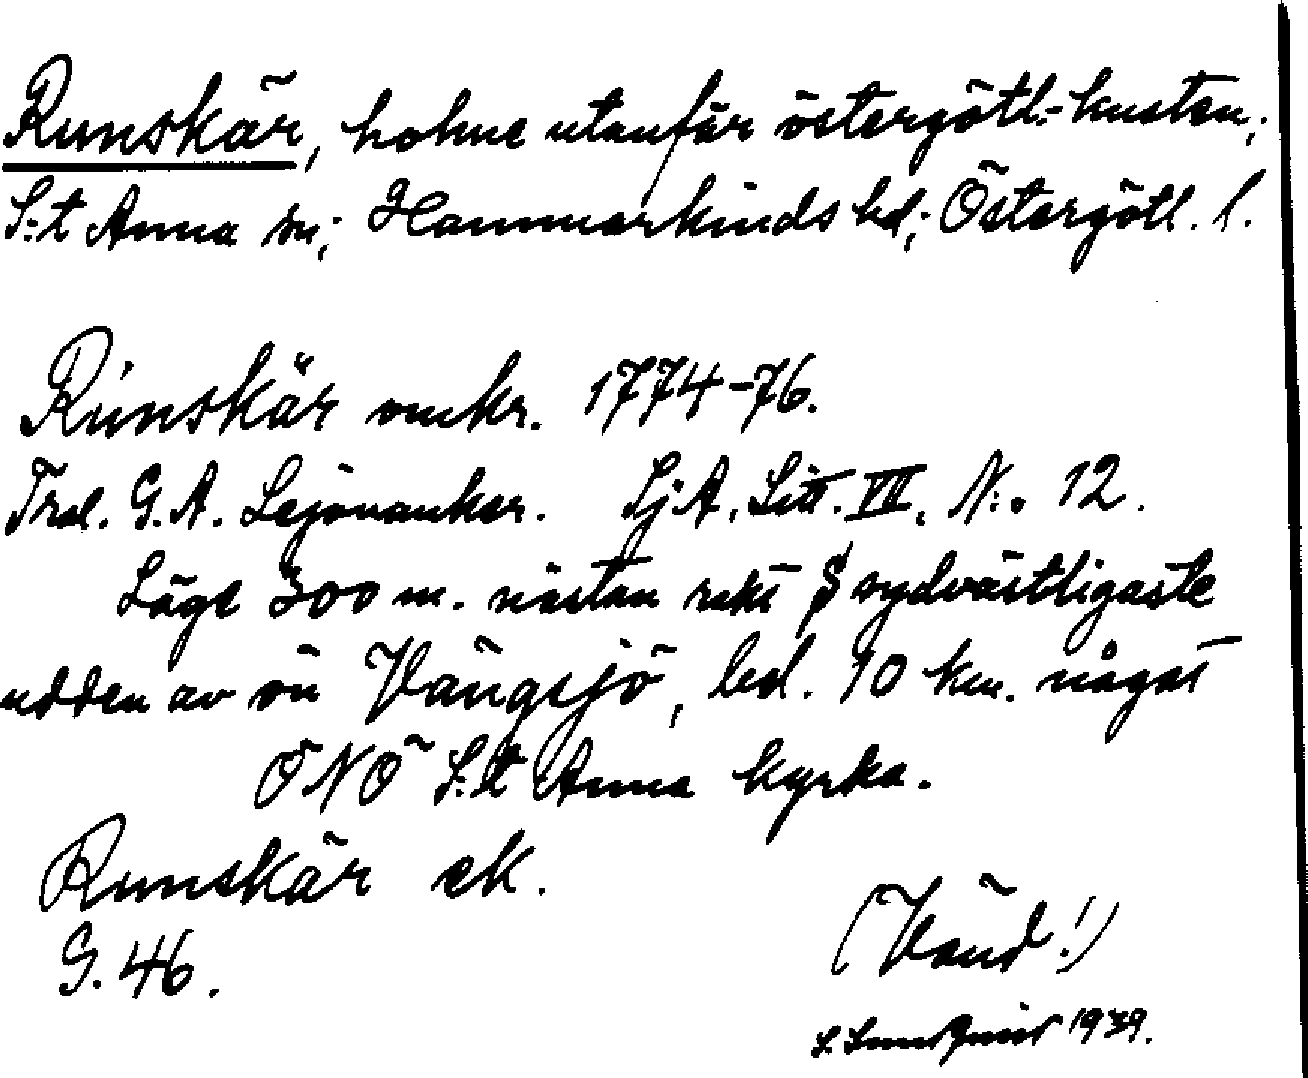 Runskär, holme utanför östergötl.-kusten;
S:t Anna sn; Hammarkinds hd; Östergötl. l.
Runskär omkr. 1774-76.
Trol. G. A. Lejonanker. SjA. Litt. VII. N:o 12.
Läge 300 m. nästan rakt S sydvästligaste
udden av ön Vängsjö, bel. 10 km. något
ÖNÖ S:t Anna kyrka.
Runskär ek.
G. 46.
(Vänd!)
S. 1939.